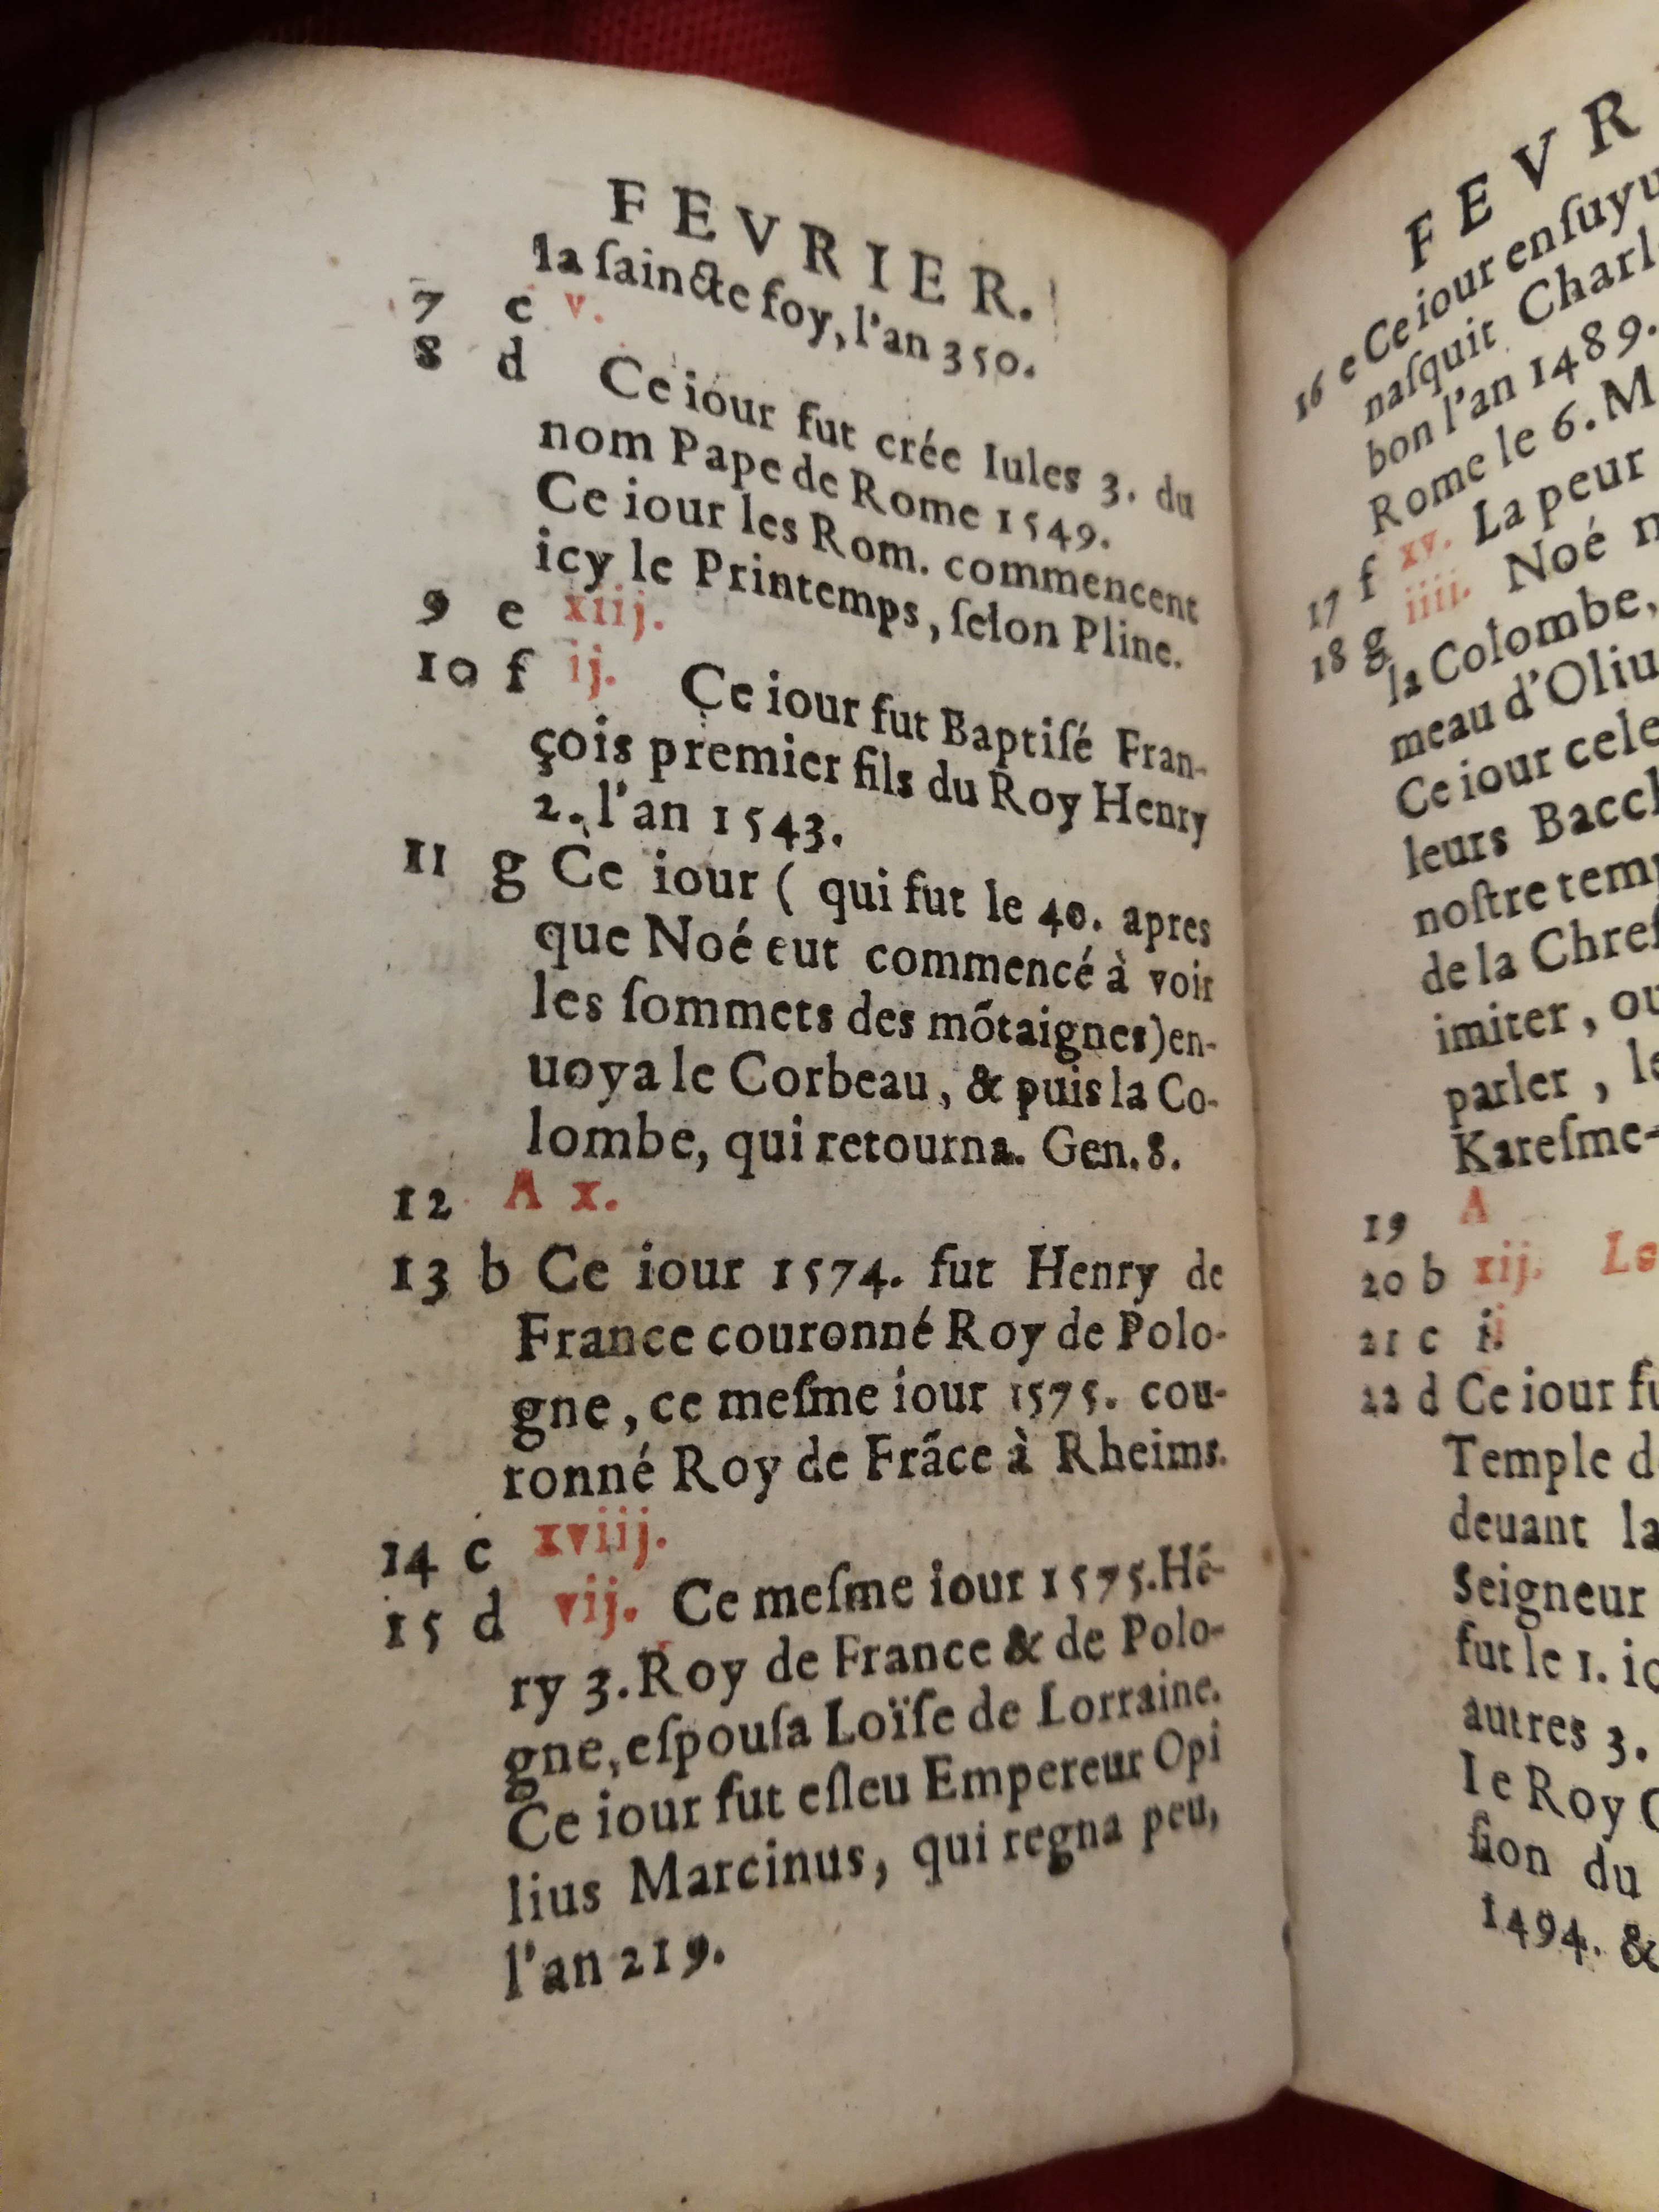 FEVRIER.
la ſaincte foy, l'an 350.
7 c v.
8 d Ce iour fut crée Iules 3. du
nom Pape de Rome 1549.
Ce iour les Rom. commencent
icy le Printemps, ſelon Pline.
9 e xiij.
10 f ij. Ce iour fut Baptiſé Fran-
çois premier fils du Roy Henry
2. l'an 1543.
11 g Ce iour ( qui fut le 40. apres
que Noé eut commencé à voir
les ſommets des mõtaignes)en-
uoya le Corbeau, & puis la Co-
lombe, qui retourna. Gen. 8.
12 A x.
13 b Ce iour 1574. fut Henry de
France couronné Roy de Polo-
gne, ce meſme iour 1575. cou-
ronné Roy de Frãce à Rheims.
14 c xviij.
15 d vij. Ce meſme iour 1575. Hē-
ry 3. Roy de France & de Polo-
gne, eſpouſa Loïſe de Lorraine.
Ce iour fut eſleu Empereur Opi
lius Marcinus, qui regna peu,
l'an 219.
FEVR
16 e Ce iour enſuyu
naſquit Charl
bon l'an 1489.
Rome le 6. M
17 f xv. La peur
18 g iiii. Noé
la Colombe,
meau d'Oliu
Ce iour cele
leurs Bacch
noſtre temp
de la Chreſ
imiter, ou
parler, le
Kareſme-
19 A
20 b xij. Le
21 c i.
22 d Ce iour fu
Temple d
deuant la
Seigneur
fut le 1. io
autres 3.
Ie Roy C
ſion du
1494. &